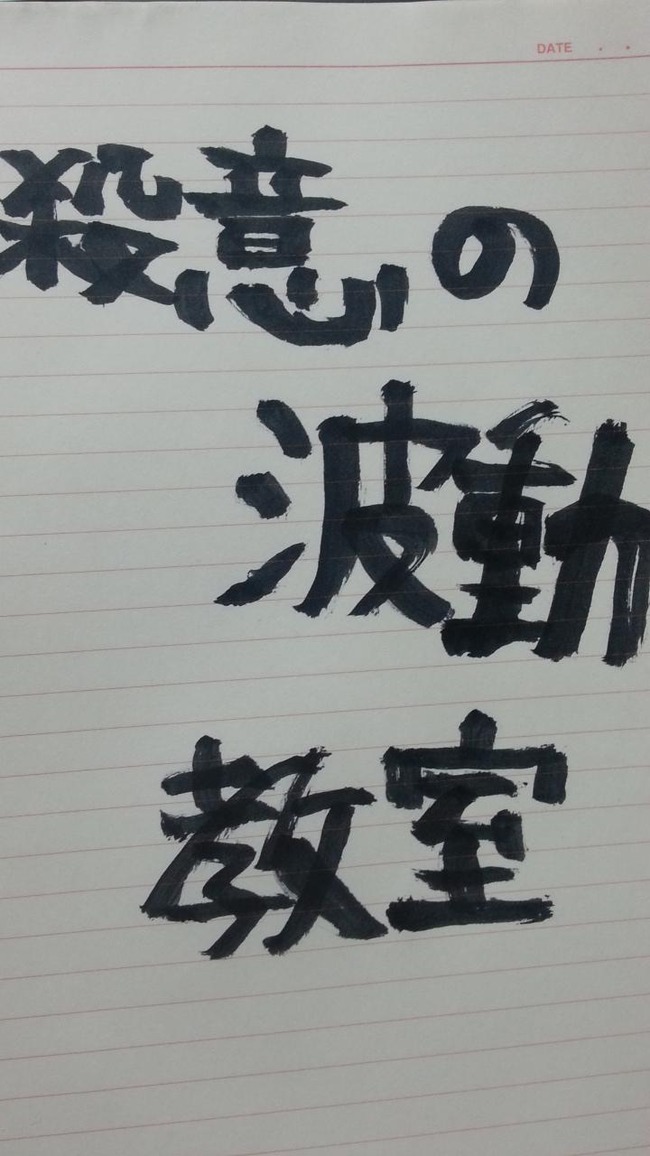 DATE . .
殺意の
波動
教室